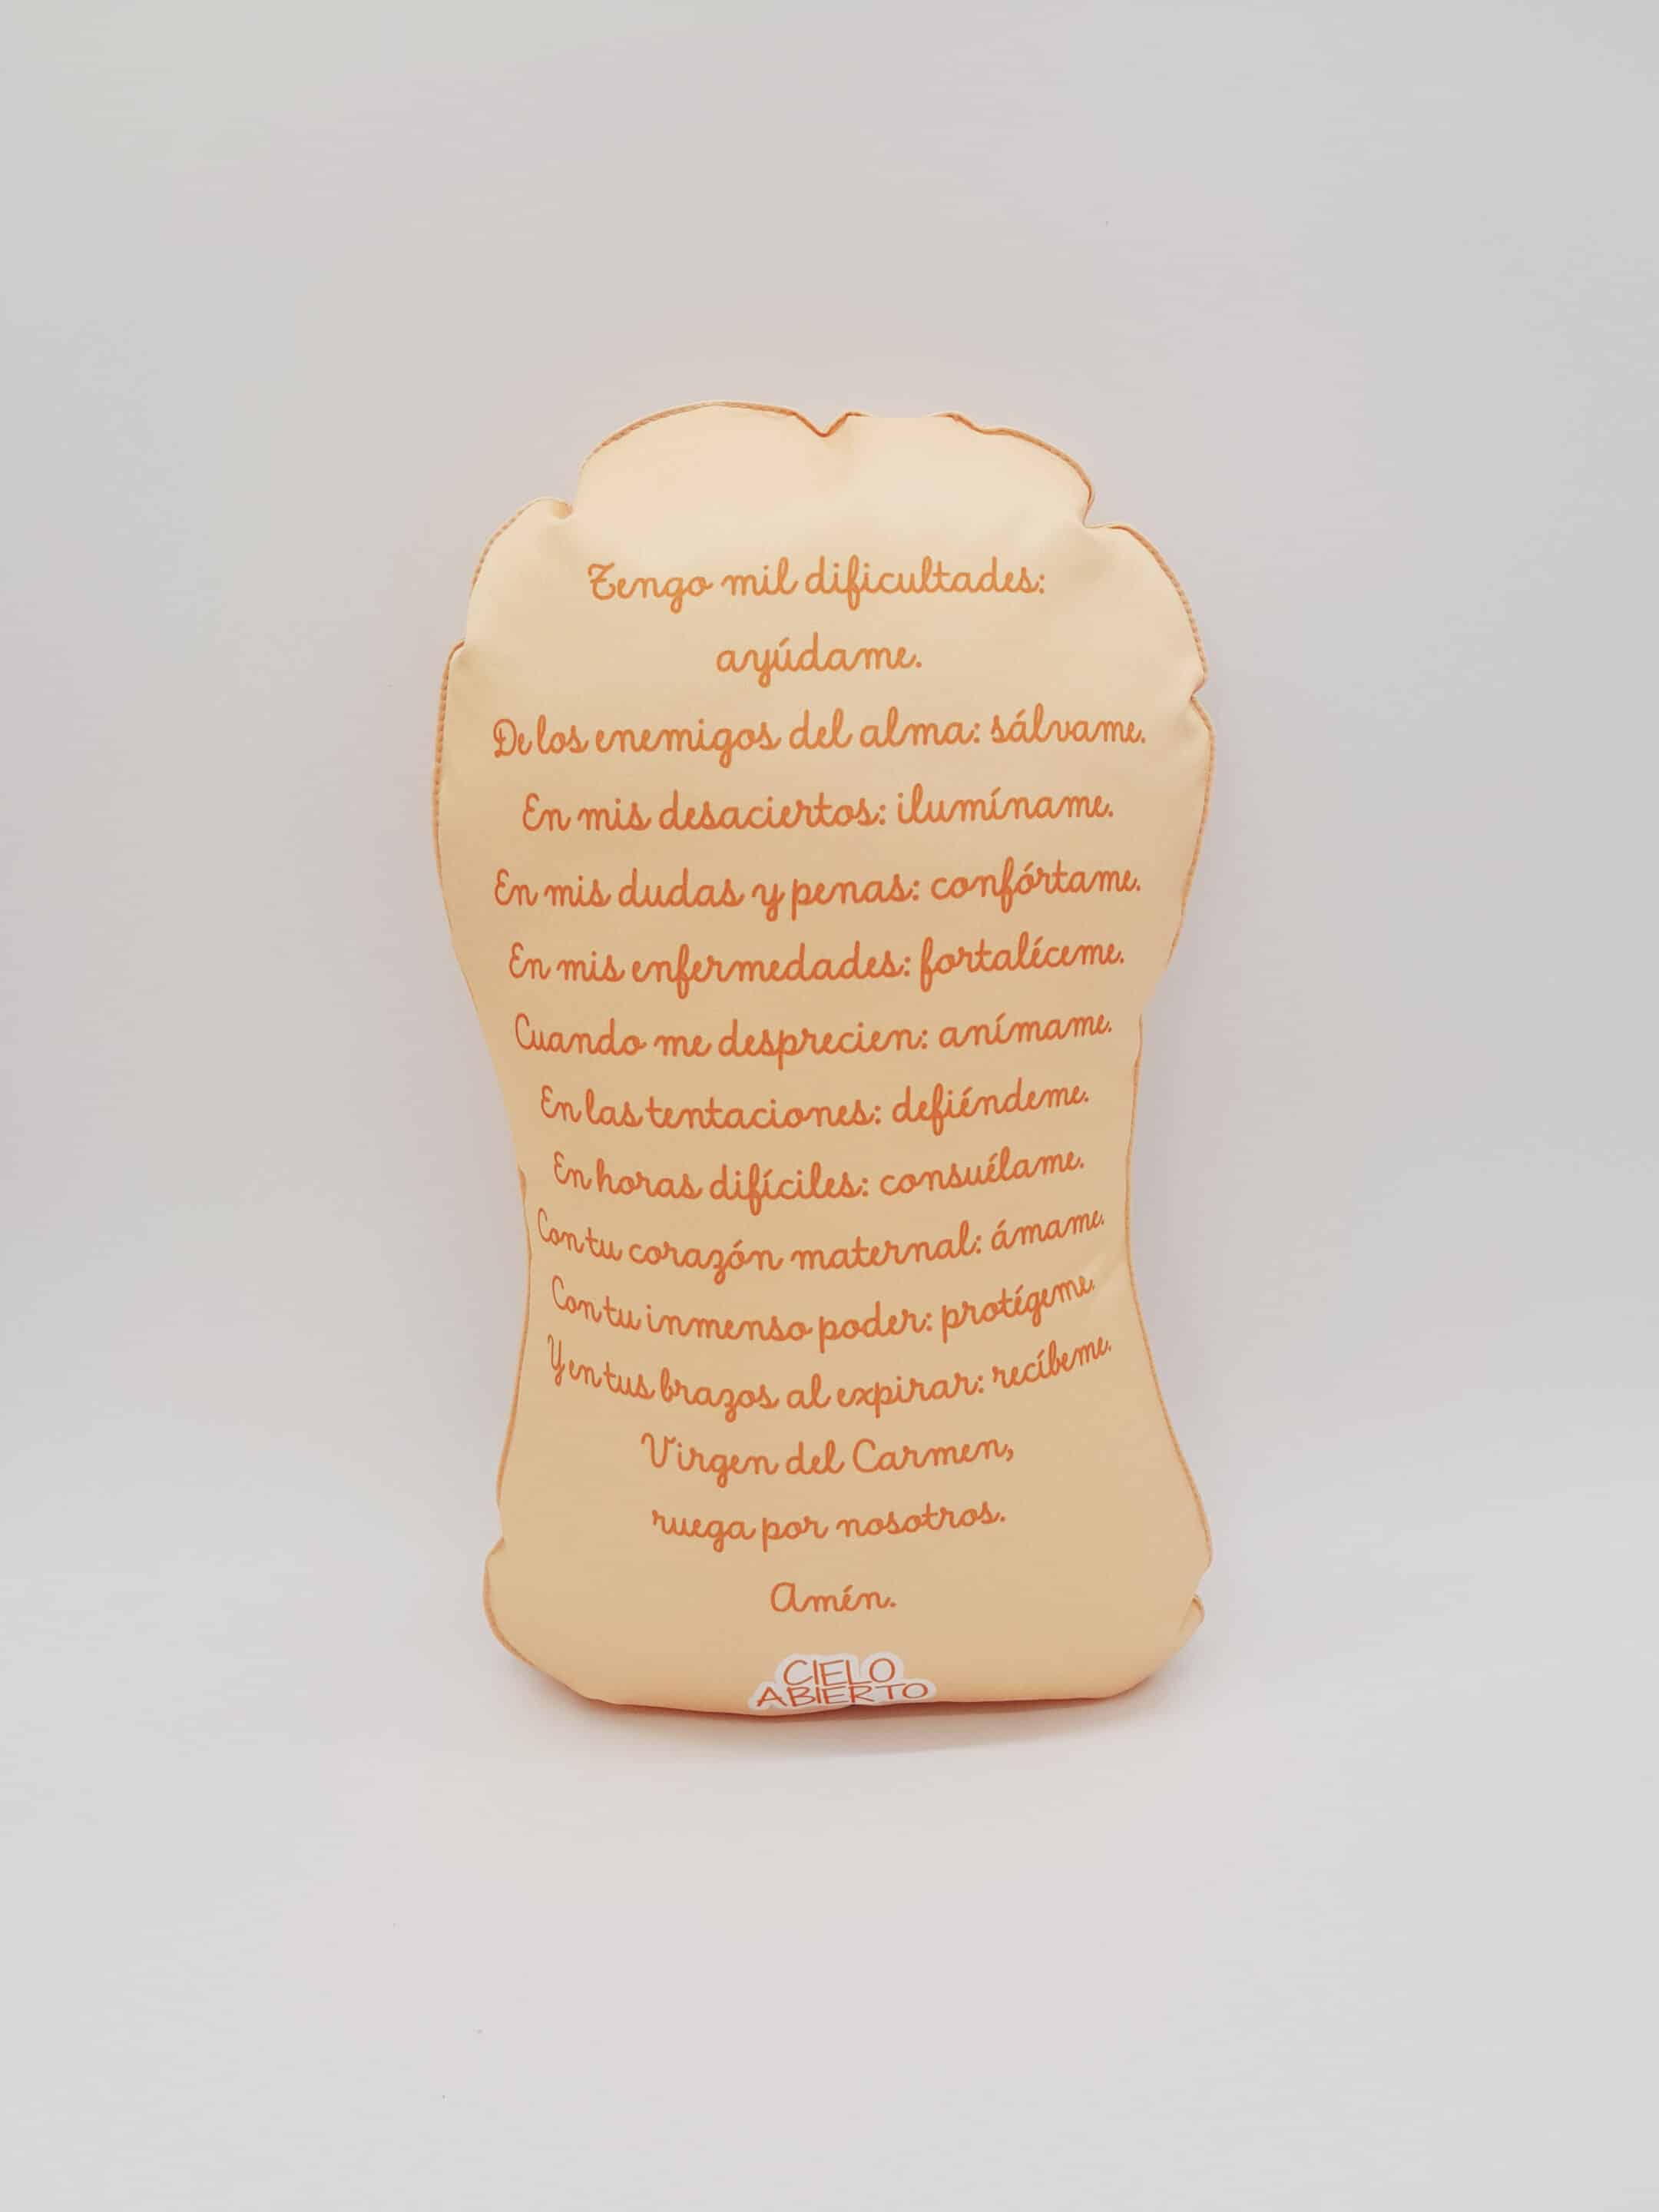 Tengo mil dificultades:
ayúdame.
De los enemigos del alma: sálvame.
En mis desaciertos: ilumíname.
En mis dudas y penas: confórtame.
En mis enfermedades: fortaléceme.
Cuando me desprecien: anímame.
En las tentaciones: defiéndeme.
En horas difíciles: consuélame.
Con tu corazón maternal: ámame.
Con tu inmenso poder: protégeme.
Y en tus brazos al expirar: recíbeme.
Virgen del Carmen,
ruega por nosotros.
Amén.
CIELO
ABIERTO